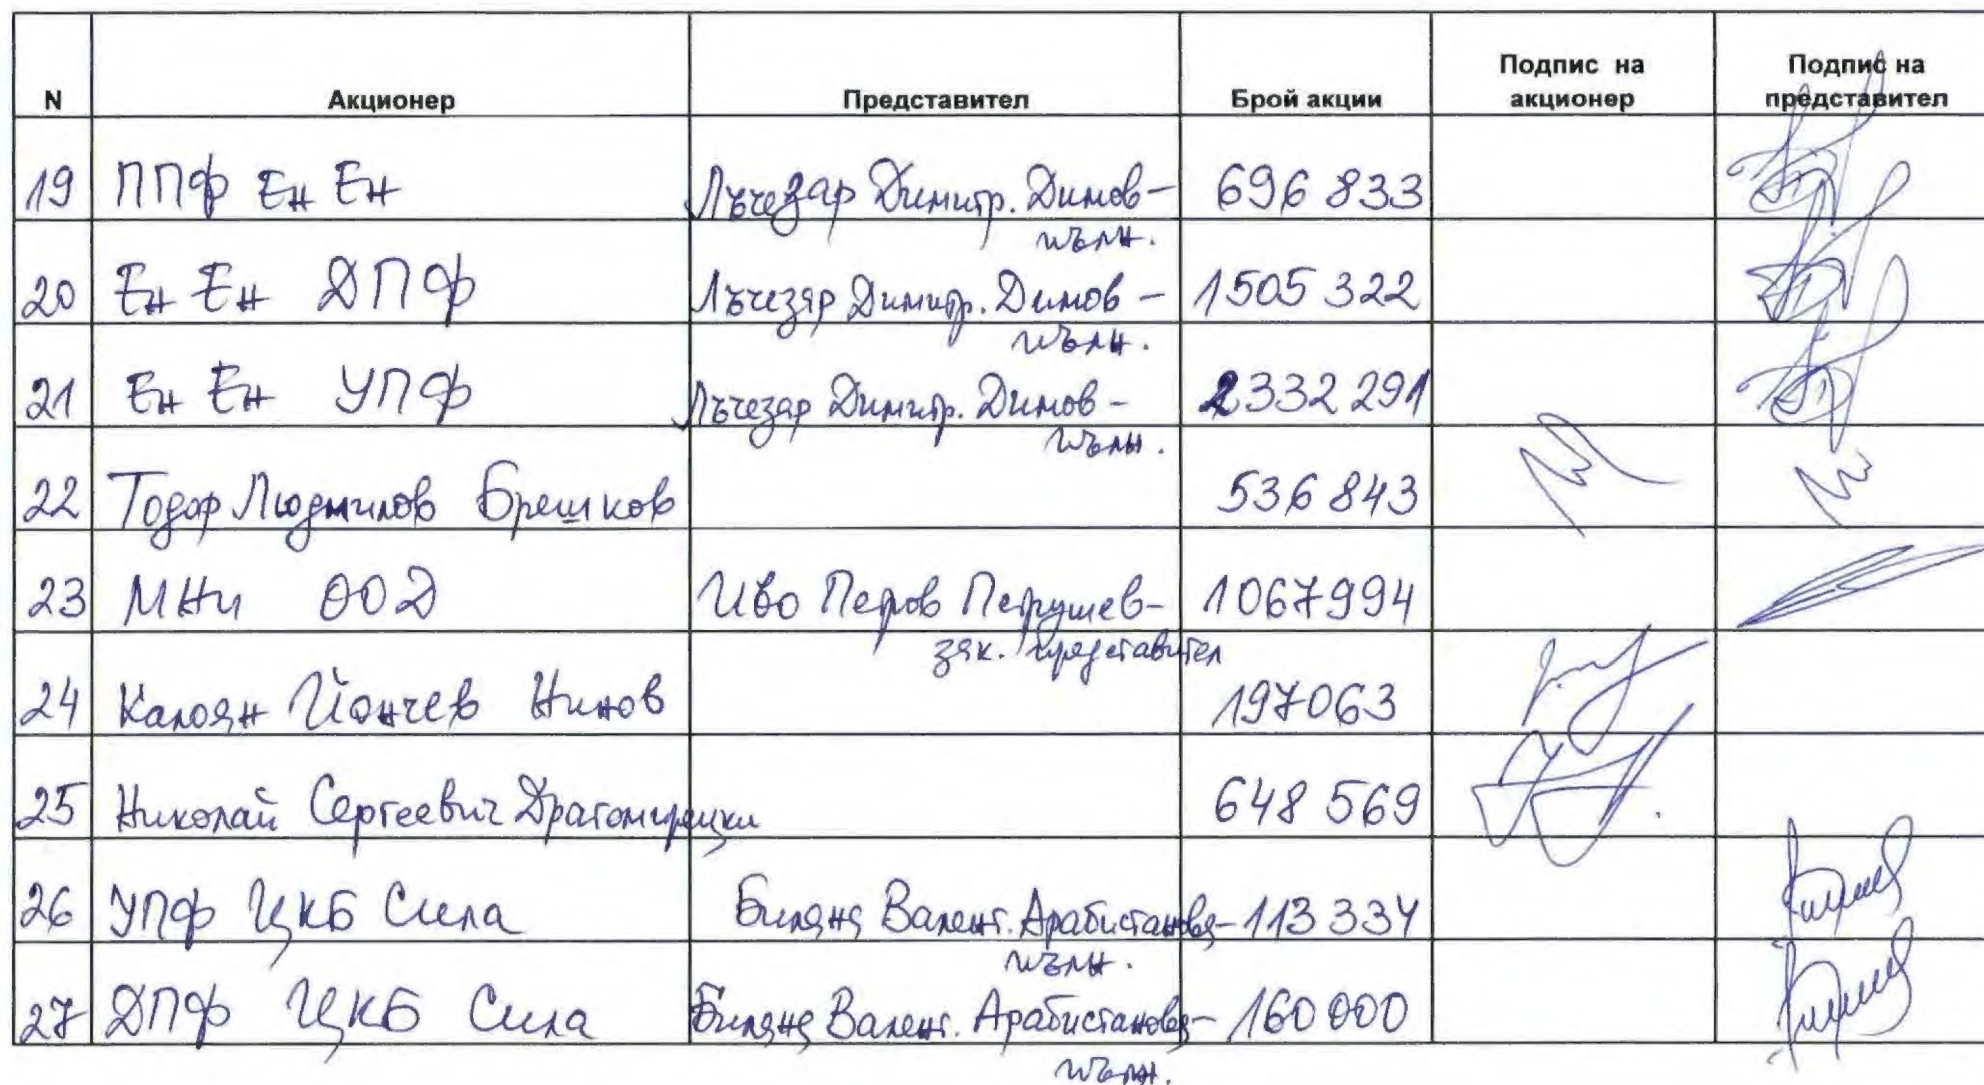 N Акционер Представител Брой акции Подпис на акционер Подпис на представител
19 ППФ Ен Ен Лъчезар Димитр. Димов - 696 833
пълн.
20 Ен Ен ДПФ Лъчезар Димитр. Димов - 1505 322
пълн.
21 Ен Ен УПФ Лъчезар Димитр. Димов - 2332 291
пълн.
22 Тодор Людмилов Брешков 536 843
23 МНИ ООД Иво Петров Петрушев - 1067994
зак. представител
24 Калоян Йончев Нинов 197063
25 Николай Сергеевич Драгомирецки 648 569
26 УПФ ЦКБ Сила Биляна Валент. Арабистанова - 113 334
пълн.
27 ДПФ ЦКБ Сила Биляна Валент. Арабистанова - 160 000
пълн.